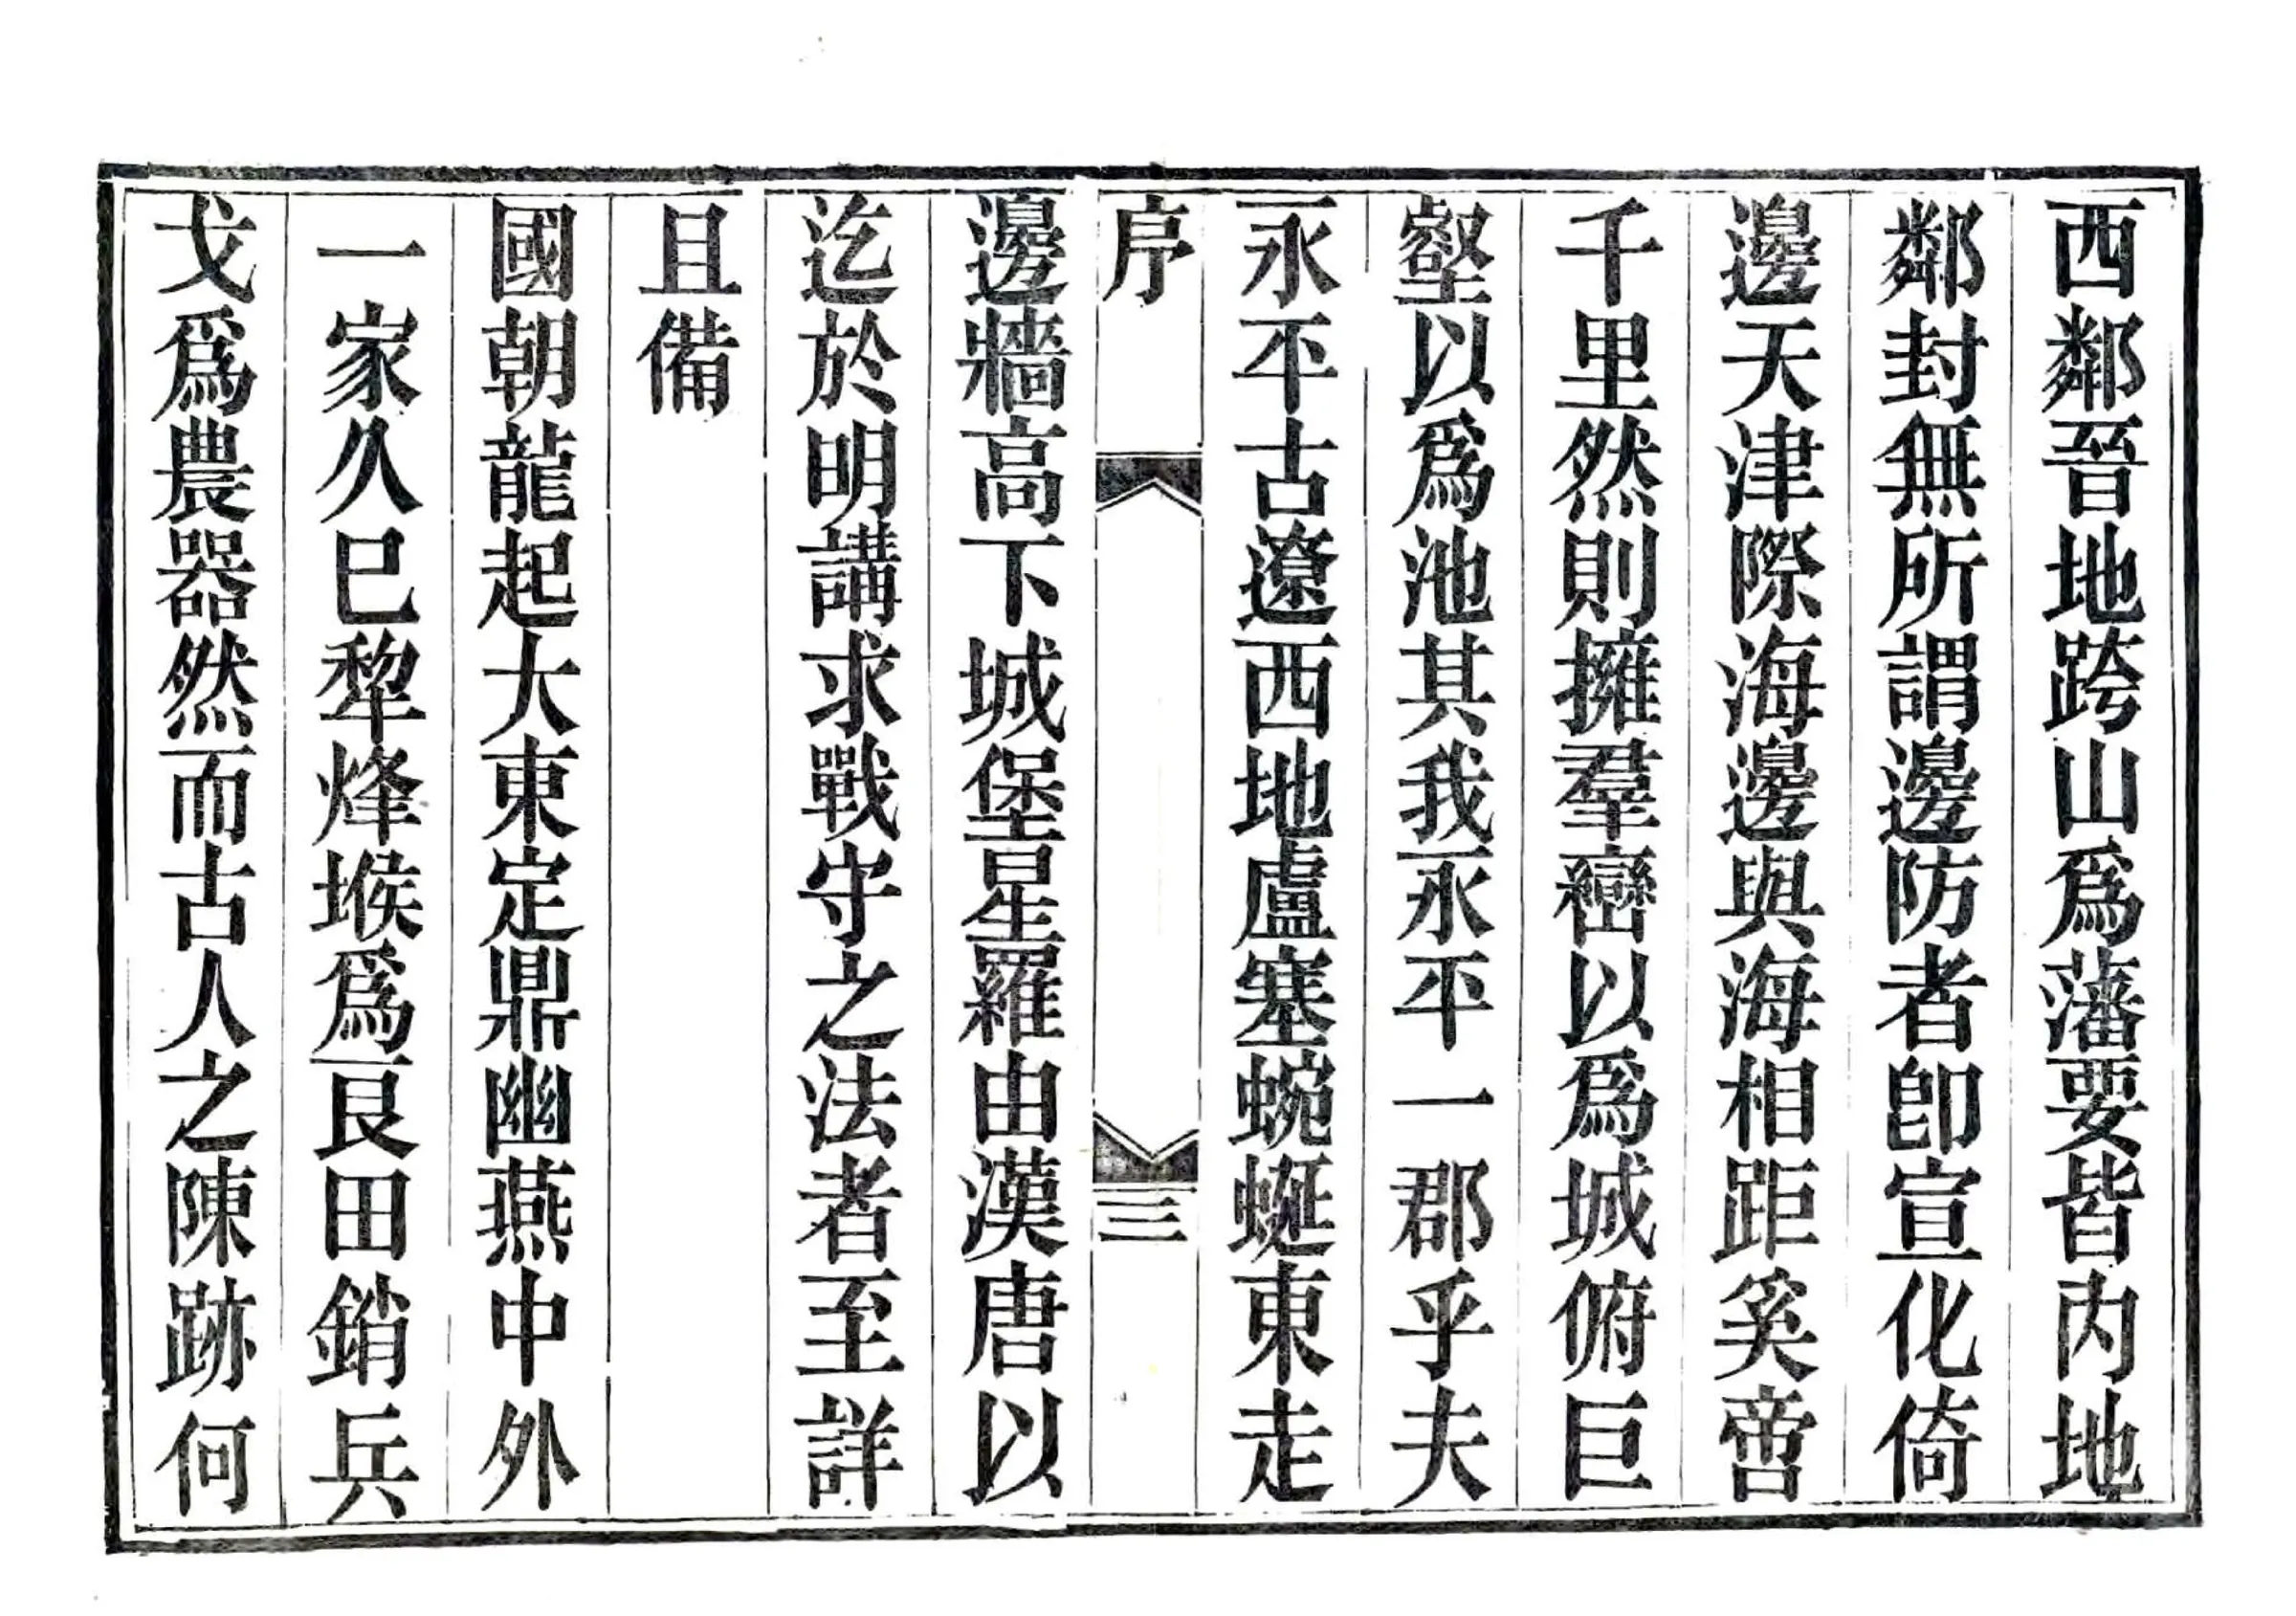 西鄰晉地跨山爲藩要皆內地
鄰封無所謂邊防者卽宣化倚
邊天津際海邊與海相距奚啻
千里然則擁羣巒以爲城俯巨
壑以爲池其我永平一郡乎夫
永平古遼西地盧塞蜿蜒東走
序
三
邊牆高下城堡星羅由漢唐以
迄於明講求戰守之法者至詳
且備
國朝龍起大東定鼎幽燕中外
一家久巳犂烽堠爲艮田銷兵
戈爲農器然而古人之陳跡何